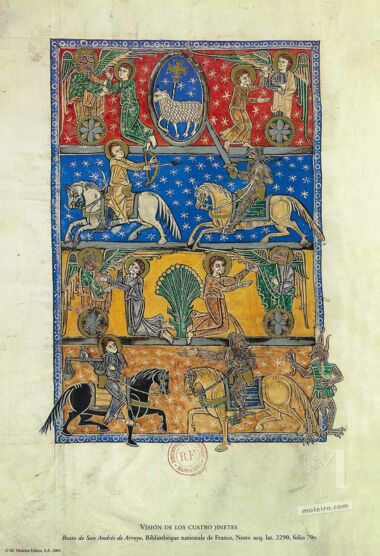 R.F.
moleiro.com
VISIÓN DE LOS CUATRO JINETES
Beato de San Andrés de Arroyo, Bibliothèque nationale de France, Nouv. acq. lat. 2290, folio 70v.
© M. Moleiro Editor, S.A. 2003